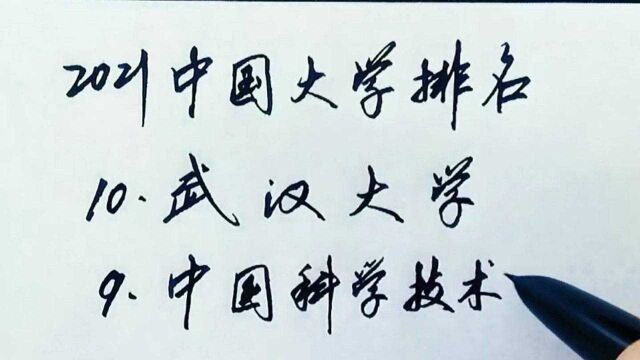 2021中国大学排名
10.武汉大学
9.中国科学技术